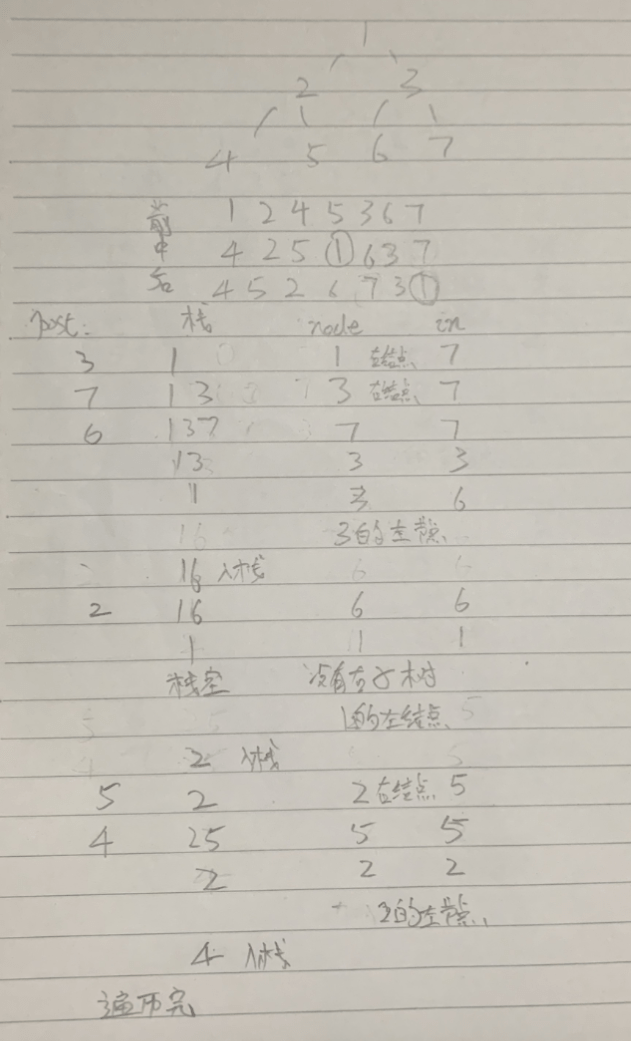 1
2 3
4 5 6 7
前 1 2 4 5 3 6 7
中 4 2 5 ① 6 3 7
后 4 5 2 6 7 3 ①
post: 栈 node in
3 1 1 右结点 7
7 1 3 3 右结点 7
6 137 7 7
13 3 3
1 3 6
16 3的左结点
16 入栈 6 6
2 16 6 6
1 1 1
栈空 没有右子树
1的左结点 5
2 入栈 5
5 2 2右结点 5
4 25 5 5
2 2 2
2的左结点
4 入栈
遍历完